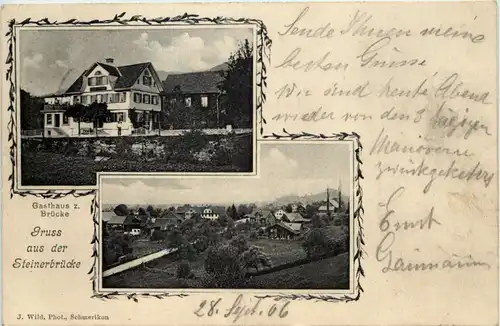 Gasthaus z.
Brücke
Gruss
aus der
Steinerbrücke
J. Wild, Phot., Schmerikon
Sende Ihnen meine
besten Grüsse
Wir sind heute Abend
wieder von den 3 tägigen
Manövern
zurückgekehrt
Ernst
28. Sept. 06